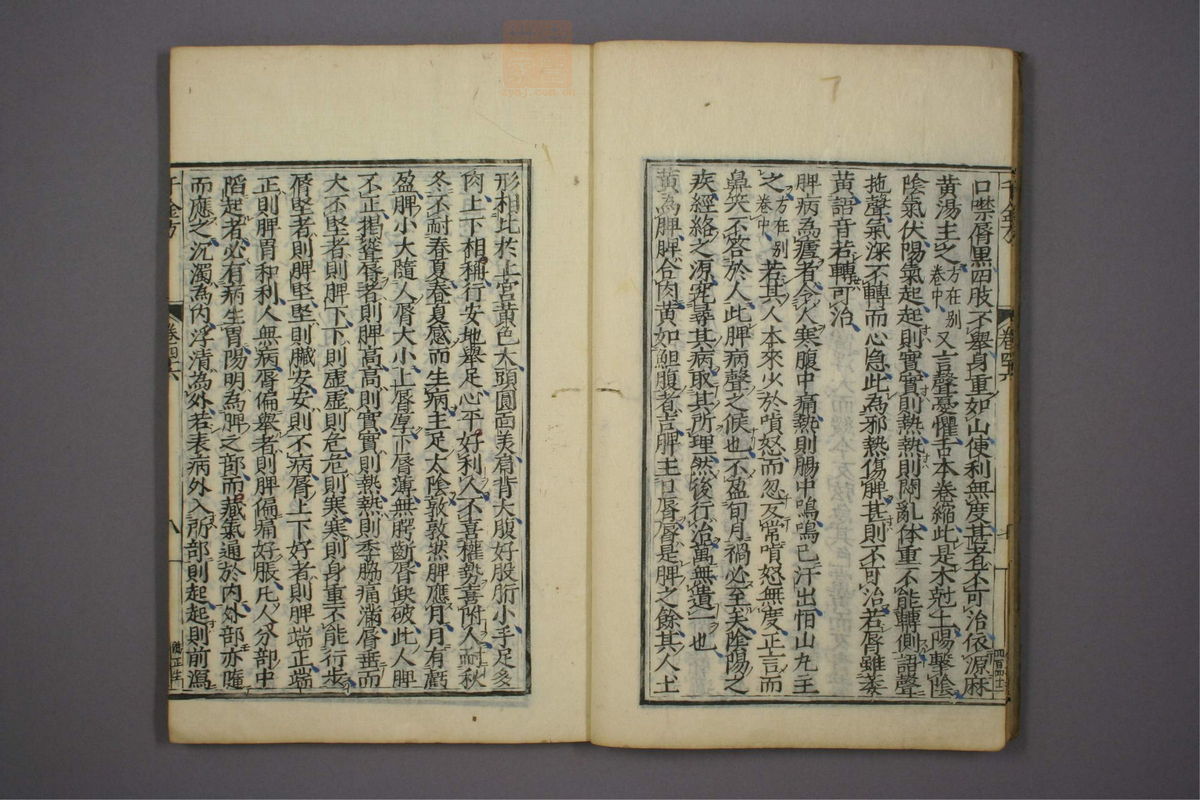 口噤脣黑四肢不舉身重如山便利無度甚者不可治依源麻
黃湯主之方在別卷中又言聲憂懼舌本卷縮此是木尅土陽擊陰
陰氣伏陽氣起起則實實則熱熱則悶亂体重不能轉側語聲
拖聲氣深不轉而心急此為邪熱傷脾甚則不可治若脣雖萎
黃語音若轉可治
脾病為瘧者令人寒腹中痛熱則腸中鳴鳴已汗出怕山丸主
之方在別卷中若其人本來少於嗔怒而忽反常嗔怒無度正言而
鼻笑不答於人此脾病聲之候也不盈旬月禍必至矣陰陽之
疾經絡之源究尋其病取其所理然後行治萬無遺一也
黃為脾脾合肉黃如鱓腹者吉脾主口脣脣是脾之餘其人土
形相比於上宮黃色大頭圓面美肩背大腹好股胻小手足多
肉上下相稱行安地舉足心平好利人不喜權勢喜附人耐秋
冬不耐春夏春夏感而生病主足太陰敦敦然脾應月月有虧
盈脾小大隨人脣大小上脣厚下脣薄無腭齗脣缺破此人脾
不正揭聳脣者則脾高高則實實則熱熱則季脇痛滿脣垂而
大不堅者則脾下下則虛虛則危危則寒寒則身重不能行步
脣堅者則脾堅堅則臟安安則不病脣上下好者則脾端正端
正則脾胃和利人無病脣偏舉者則脾偏痛好脹凡人分部中
陷起者必有病生胃陽明為脾之部而藏氣通於內外部亦隨
而應之沉濁為內浮清為外若表病外入所部則起起則前瀉
千金方
卷四六
八